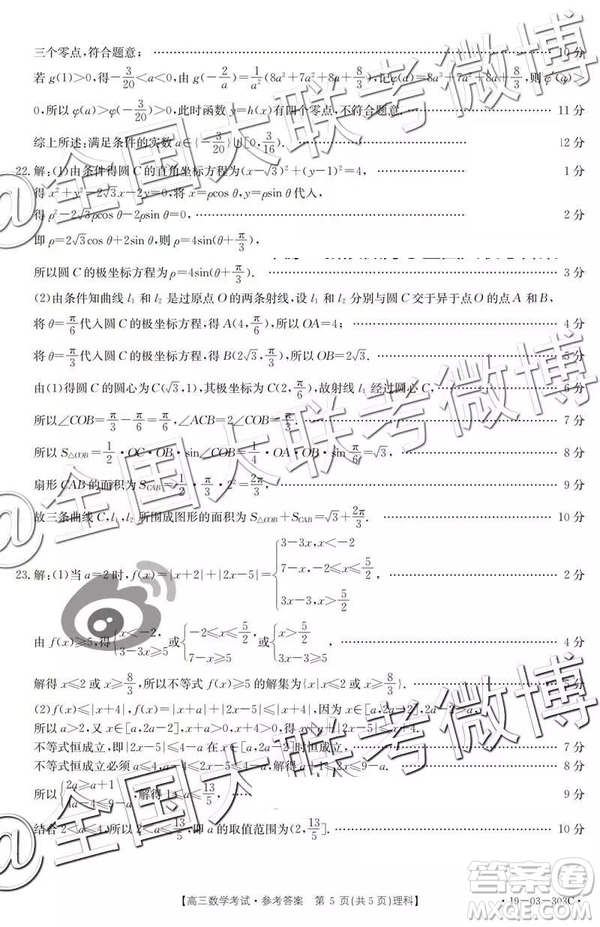 三个零点,符合题意; 10分
若g(1)>0,得-3/20<a<0,由g(-2/a)=1/a²(8a³+7a²+8a+8/3),记φ(a)=8a³+7a²+8a+8/3,则φ(a)>
0,所以φ(a)>φ(-3/20)>0,此时函数y=h(x)有四个零点,不符合题意. 11分
综上所述:满足条件的实数a∈{-3/20}∪[0,3/16). 12分
22.解:(1)由条件得圆C的直角坐标方程为(x-√3)²+(y-1)²=4, 1分
得x²+y²-2√3x-2y=0,将x=ρcos θ,y=ρsin θ代入,
得ρ²-2√3ρcos θ-2ρsin θ=0, 2分
即ρ=2√3cos θ+2sin θ,则ρ=4sin(θ+π/3),
所以圆C的极坐标方程为ρ=4sin(θ+π/3). 3分
(2)由条件知曲线l₁和l₂是过原点O的两条射线,设l₁和l₂分别与圆C交于异于点O的点A和B,
将θ=π/6代入圆C的极坐标方程,得A(4,π/6),所以OA=4; 4分
将θ=π/3代入圆C的极坐标方程,得B(2√3,π/3),所以OB=2√3. 5分
由(1)得圆C的圆心为C(√3,1),其极坐标为C(2,π/6),故射线l₁经过圆心C, 6分
所以∠COB=π/3-π/6=π/6,∠ACB=2∠COB=π/3. 7分
所以S△COB=1/2·OC·OB·sin∠COB=1/4·OA·OB·sin π/6=√3, 8分
扇形CAB的面积为S_CAB=1/2·π/3·2²=2π/3. 9分
故三条曲线C,l₁,l₂所围成图形的面积为S△COB+S_CAB=√3+2π/3. 10分
23.解:(1)当a=2时,f(x)=|x+2|+|2x-5|={3-3x,x<-2 7-x,-2≤x≤5/2, 3x-3,x>5/2 2分
由f(x)≥5,得{x<-2 3-3x≥5或{-2≤x≤5/2 7-x≥5或{x>5/2 3x-3≥5, 4分
解得x≤2或x≥8/3,所以不等式f(x)≥5的解集为{x|x≤2或x≥8/3}. 5分
(2)f(x)≤|x+4|,即|x+a|+|2x-5|≤|x+4|,因为x∈[a,2a-2],2a-2>a,
所以a>2,又x∈[a,2a-2],所以x+a>0,x+4>0,得x+a+|2x-5|≤x+4,
不等式恒成立,即|2x-5|≤4-a在x∈[a,2a-2]时恒成立, 7分
不等式恒成立必须a≤4,a-4≤2x-5≤4-a,解得a+1≤2x≤9-a,
所以{2a≥a+1 4a-4≤9-a,解得1≤a≤13/5, 9分
结合2<a≤4,所以2<a≤13/5,即a的取值范围为(2,13/5]. 10分
【高三数学考试·参考答案 第5页(共5页)理科】
·19-03-303C·
@全国大联考微博
@全国大联考微博
@全国大联考微博
答案圈
MXQE.COM